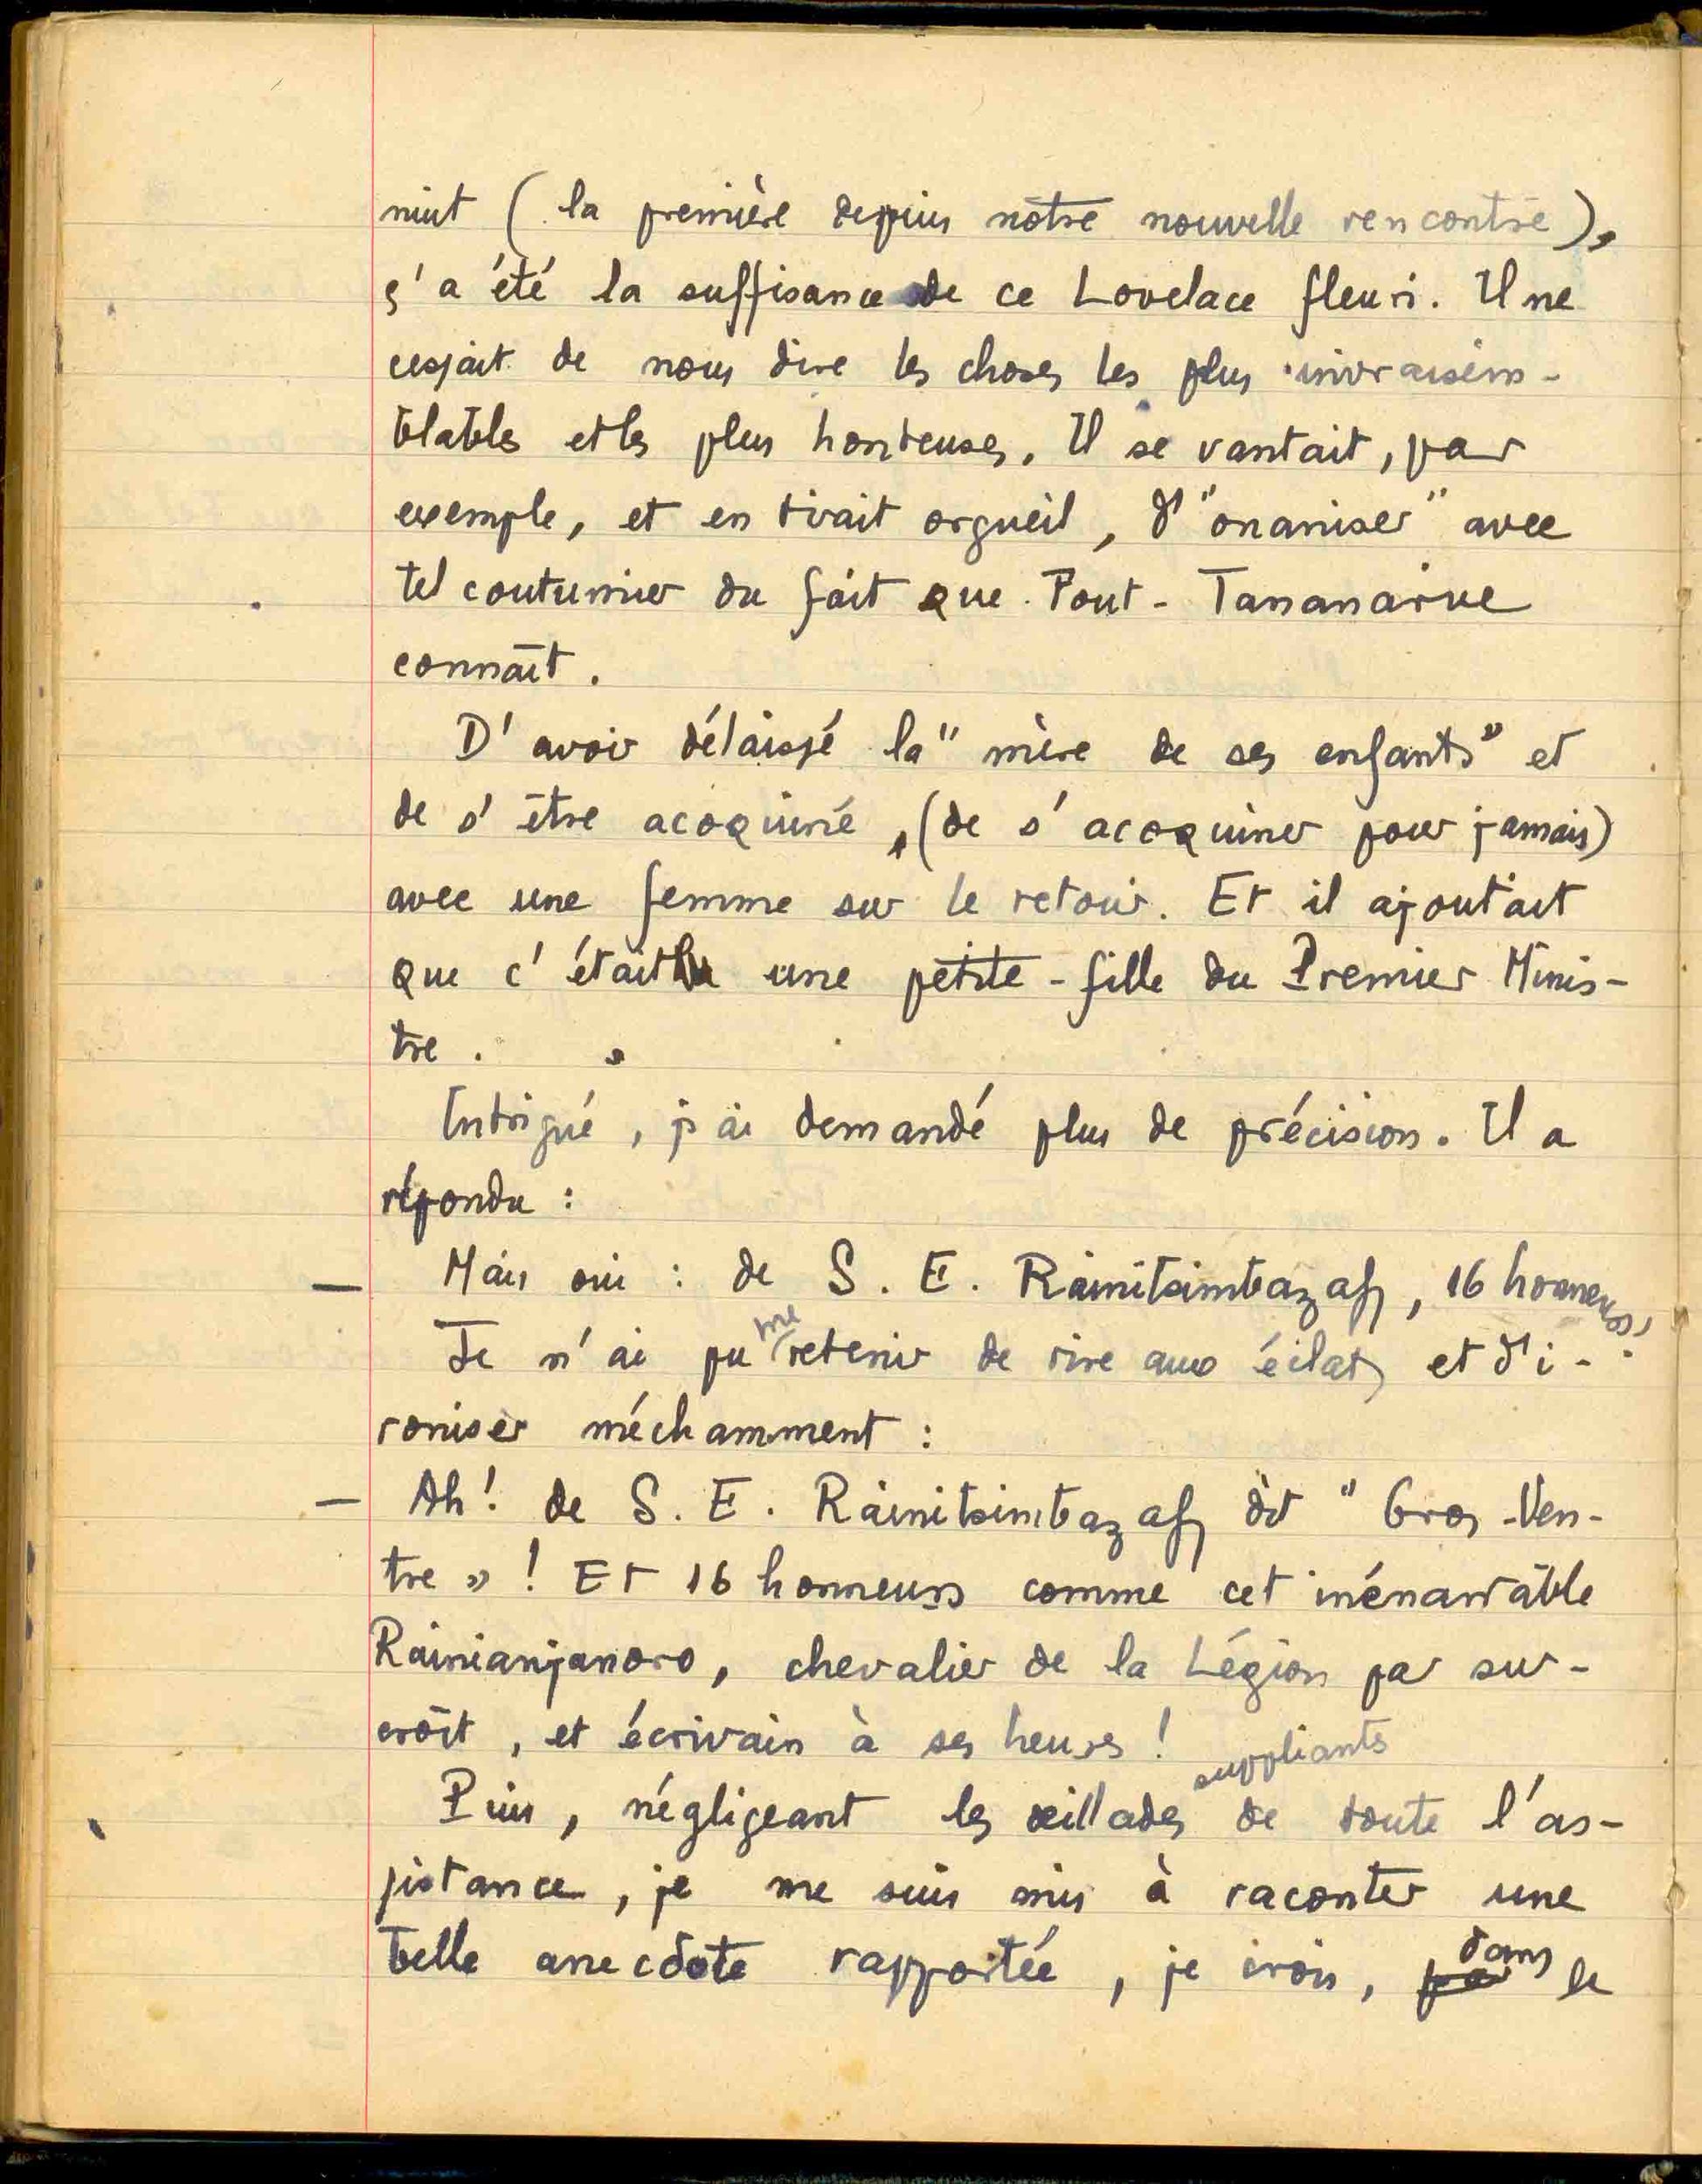 nuit (la première depuis notre nouvelle rencontre),
ç'a été la suffisance de ce Lovelace fleuri. Il ne
cessait de nous dire les choses les plus invraisem-
blables et les plus honteuses. Il se vantait, par
exemple, et en tirait orgueil, d'"onaniser" avec
tel coutumier du fait que Tout-Tananarive
connaît.
D'avoir délaissé la "mère de ses enfants" et
de s'être acoquiné, (de s'acoquiner pour jamais)
avec une femme sur le retour. Et il ajoutait
que c'était une petite-fille du Premier Minis-
tre.
Intrigué, j'ai demandé plus de précision. Il a
répondu :
— Mais oui : de S. E. Rainitsimbazafy, 16 honneurs,
Je n'ai pu me retenir de rire aux éclats et d'i-
roniser méchamment :
— Ah! de S. E. Rainitsimbazafy dit "Gros-Ven-
tre" ! Et 16 honneurs comme cet inénarrable
Rainianjanoro, chevalier de la Légion par sur-
croît, et écrivain à ses heures !
Puis, négligeant les œillades suppliants de toute l'as-
sistance, je me suis mis à raconter une
belle anecdote rapportée, je crois, par dans le